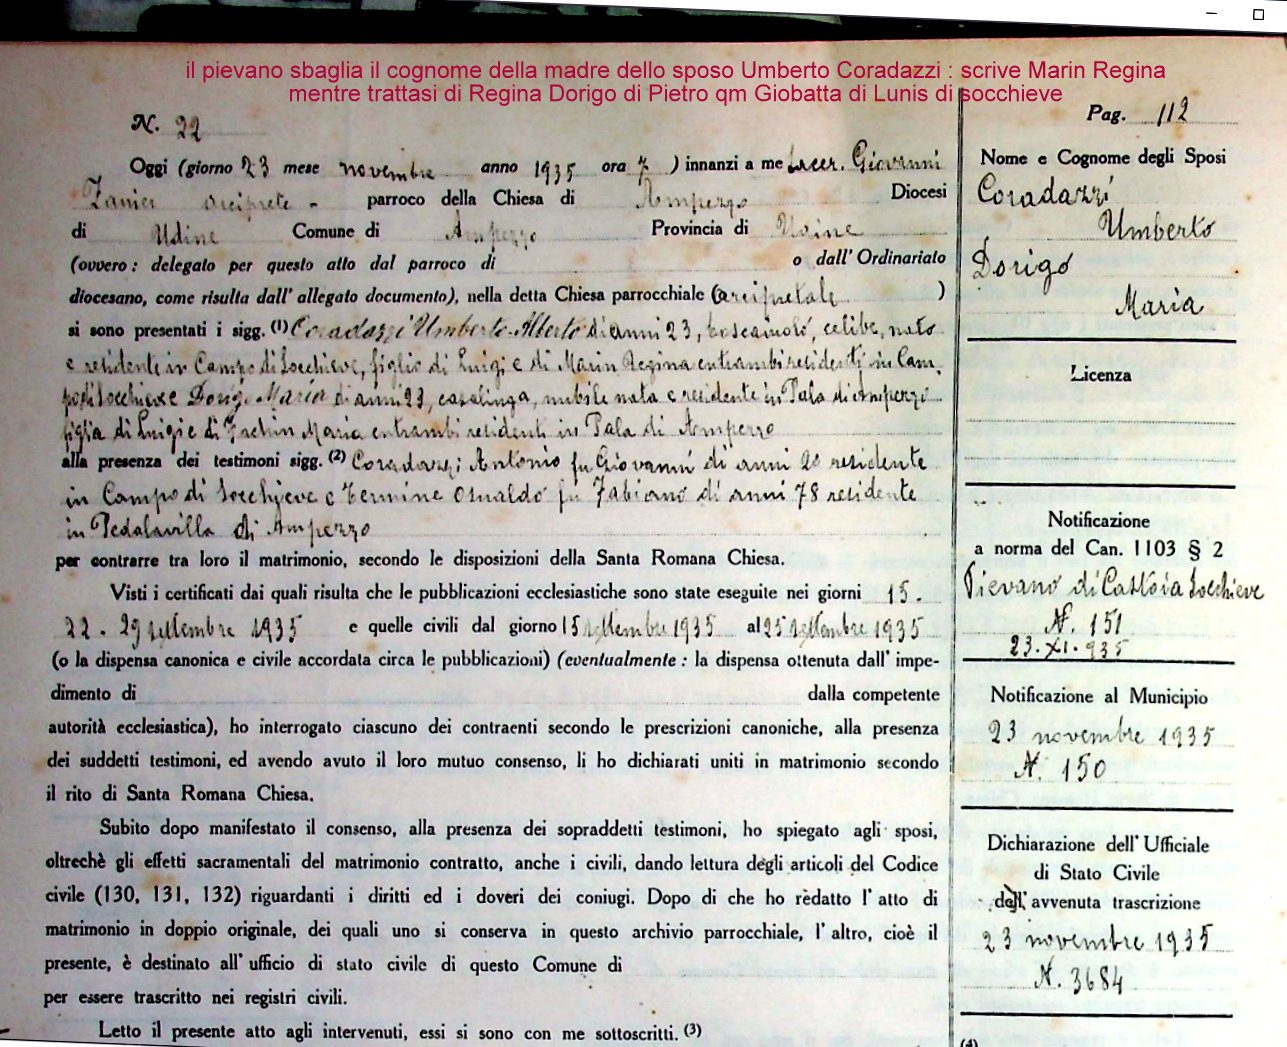 il pievano sbaglia il cognome della madre dello sposo Umberto Coradazzi : scrive Marin Regina
mentre trattasi di Regina Dorigo di Pietro qm Giobatta di Lunis di socchieve
N. 22
Oggi (giorno 23 mese novembre anno 1935 ora 7 ) innanzi a me Sacer. Giovanni
Zanier arciprete - parroco della Chiesa di Ampezzo Diocesi
di Udine Comune di Ampezzo Provincia di Udine
(ovvero : delegato per questo atto dal parroco di o dall' Ordinariato
diocesano, come risulta dall' allegato documento), nella detta Chiesa parrocchiale (arcipretale )
si sono presentati i sigg. (1) Coradazzi Umberto Alberto di anni 23, boscaiuolo, celibe, nato
e residente in Campo di Socchieve, figlio di Luigi e di Marin Regina entrambi residenti in Cam.
po di Socchieve e Dorigo Maria di anni 23, casalinga, nubile nata e residente in Pala di Ampezzo
figlia di Luigi e di Maria entrambi residenti in Pala di Ampezzo
alla presenza dei testimoni sigg. (2) Coradazzi Antonio fu Giovanni di anni residente
in Campo di Socchieve e Termine Osualdo fu Fabiano di anni 78 residente
in Pedalavilla di Ampezzo
per contrarre tra loro il matrimonio, secondo le disposizioni della Santa Romana Chiesa.
Visti i certificati dai quali risulta che le pubblicazioni ecclesiastiche sono state eseguite nei giorni 15.
22 - 29 settembre 1935 e quelle civili dal giorno 15 settembre 1935 al 25 settembre 1935
(o la dispensa canonica e civile accordata circa le pubblicazioni) (eventualmente : la dispensa ottenuta dall' impe-
dimento di dalla competente
autorità ecclesiastica), ho interrogato ciascuno dei contraenti secondo le prescrizioni canoniche, alla presenza
dei suddetti testimoni, ed avendo avuto il loro mutuo consenso, li ho dichiarati uniti in matrimonio secondo
il rito di Santa Romana Chiesa.
Subito dopo manifestato il consenso, alla presenza dei sopraddetti testimoni, ho spiegato agli sposi,
oltrechè gli effetti sacramentali del matrimonio contratto, anche i civili, dando lettura degli articoli del Codice
civile (130, 131, 132) riguardanti i diritti ed i doveri dei coniugi. Dopo di che ho redatto l' atto di
matrimonio in doppio originale, dei quali uno si conserva in questo archivio parrocchiale, l' altro, cioè il
presente, è destinato all' ufficio di stato civile di questo Comune di
per essere trascritto nei registri civili.
Letto il presente atto agli intervenuti, essi si sono con me sottoscritti. (3)
Pag. 112
Nome e Cognome degli Sposi
Coradazzi
Umberto
Dorigo
Maria
Licenza
Notificazione
a norma del Can. 1103 § 2
Pievano di Castoia Socchieve
N. 151
23.XI.935
Notificazione al Municipio
23 novembre 1935
N. 150
Dichiarazione dell' Ufficiale
di Stato Civile
dell' avvenuta trascrizione
23 novembre 1935
N. 3684
(4)